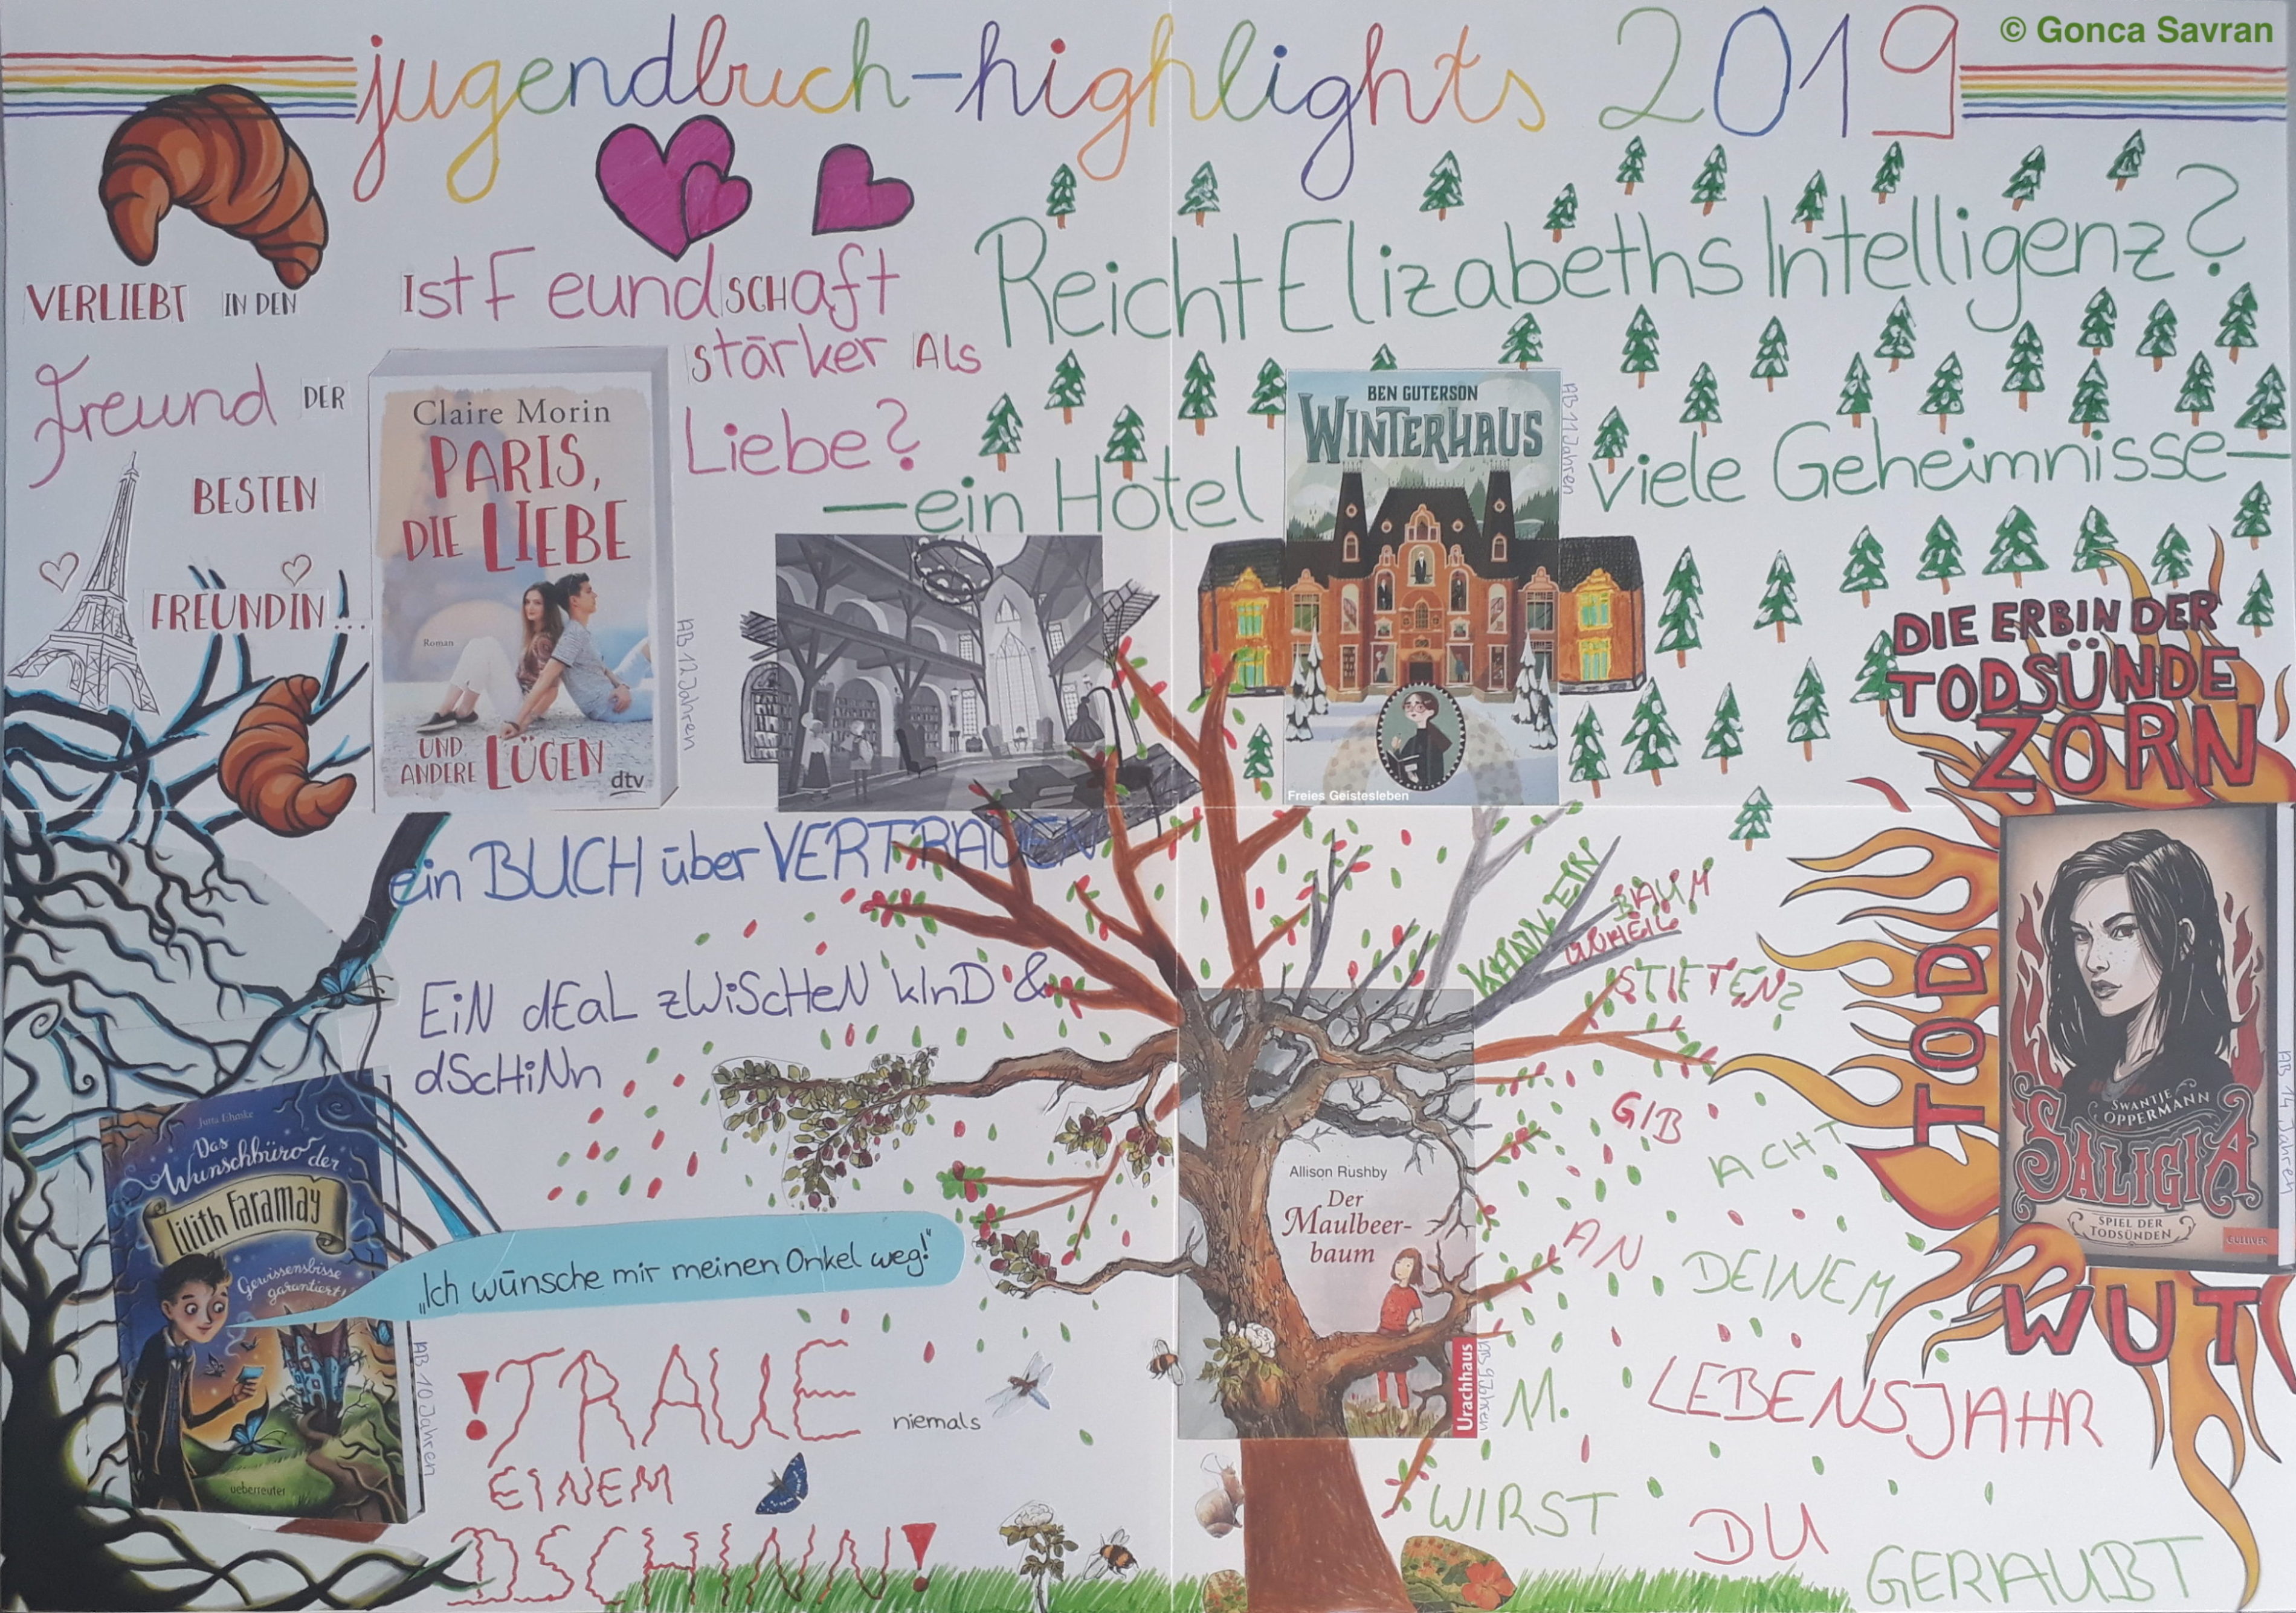 © Gonca Savran
jugendbuch-highlights 2019
VERLIEBT IN DEN
Freund DER
BESTEN
FREUNDIN...
Ist Feundschaft
stärker Als
Liebe?
Claire Morin
PARIS,
DIE LIEBE
Roman
UND
ANDERE LÜGEN
dtv
AB 12 Jahren
Reicht Elizabeths Intelligenz?
—ein Hotel
viele Geheimnisse—
BEN GUTERSON
WINTERHAUS
Freies Geistesleben
AB 11 Jahren
DIE ERBIN DER
TODSÜNDE
ZORN
TOD
SWANTJE
OPPERMANN
SALIGIA
SPIEL DER
TODSÜNDEN
GULLIVER
AB 14 Jahren
WUT
ein BUCH über VERTRAUEN
EiN dEaL zWiScHeN kInD &
dScHiNn
Das
Wunschbüro der
Lilith Faramay
Gewissensbisse
garantiert!
ueberreuter
AB 10 Jahren
„Ich wünsche mir meinen Onkel weg!"
!TRAUE
niemals
EINEM
DSCHINN!
KANN EIN
BAUM
UNHEIL
STIFTEN?
Allison Rushby
Der
Maulbeer-
baum
Urachhaus
AB 9 Jahren
GIB
ACHT
AN DEINEM
11. LEBENSJAHR
WIRST DU
GERAUBT